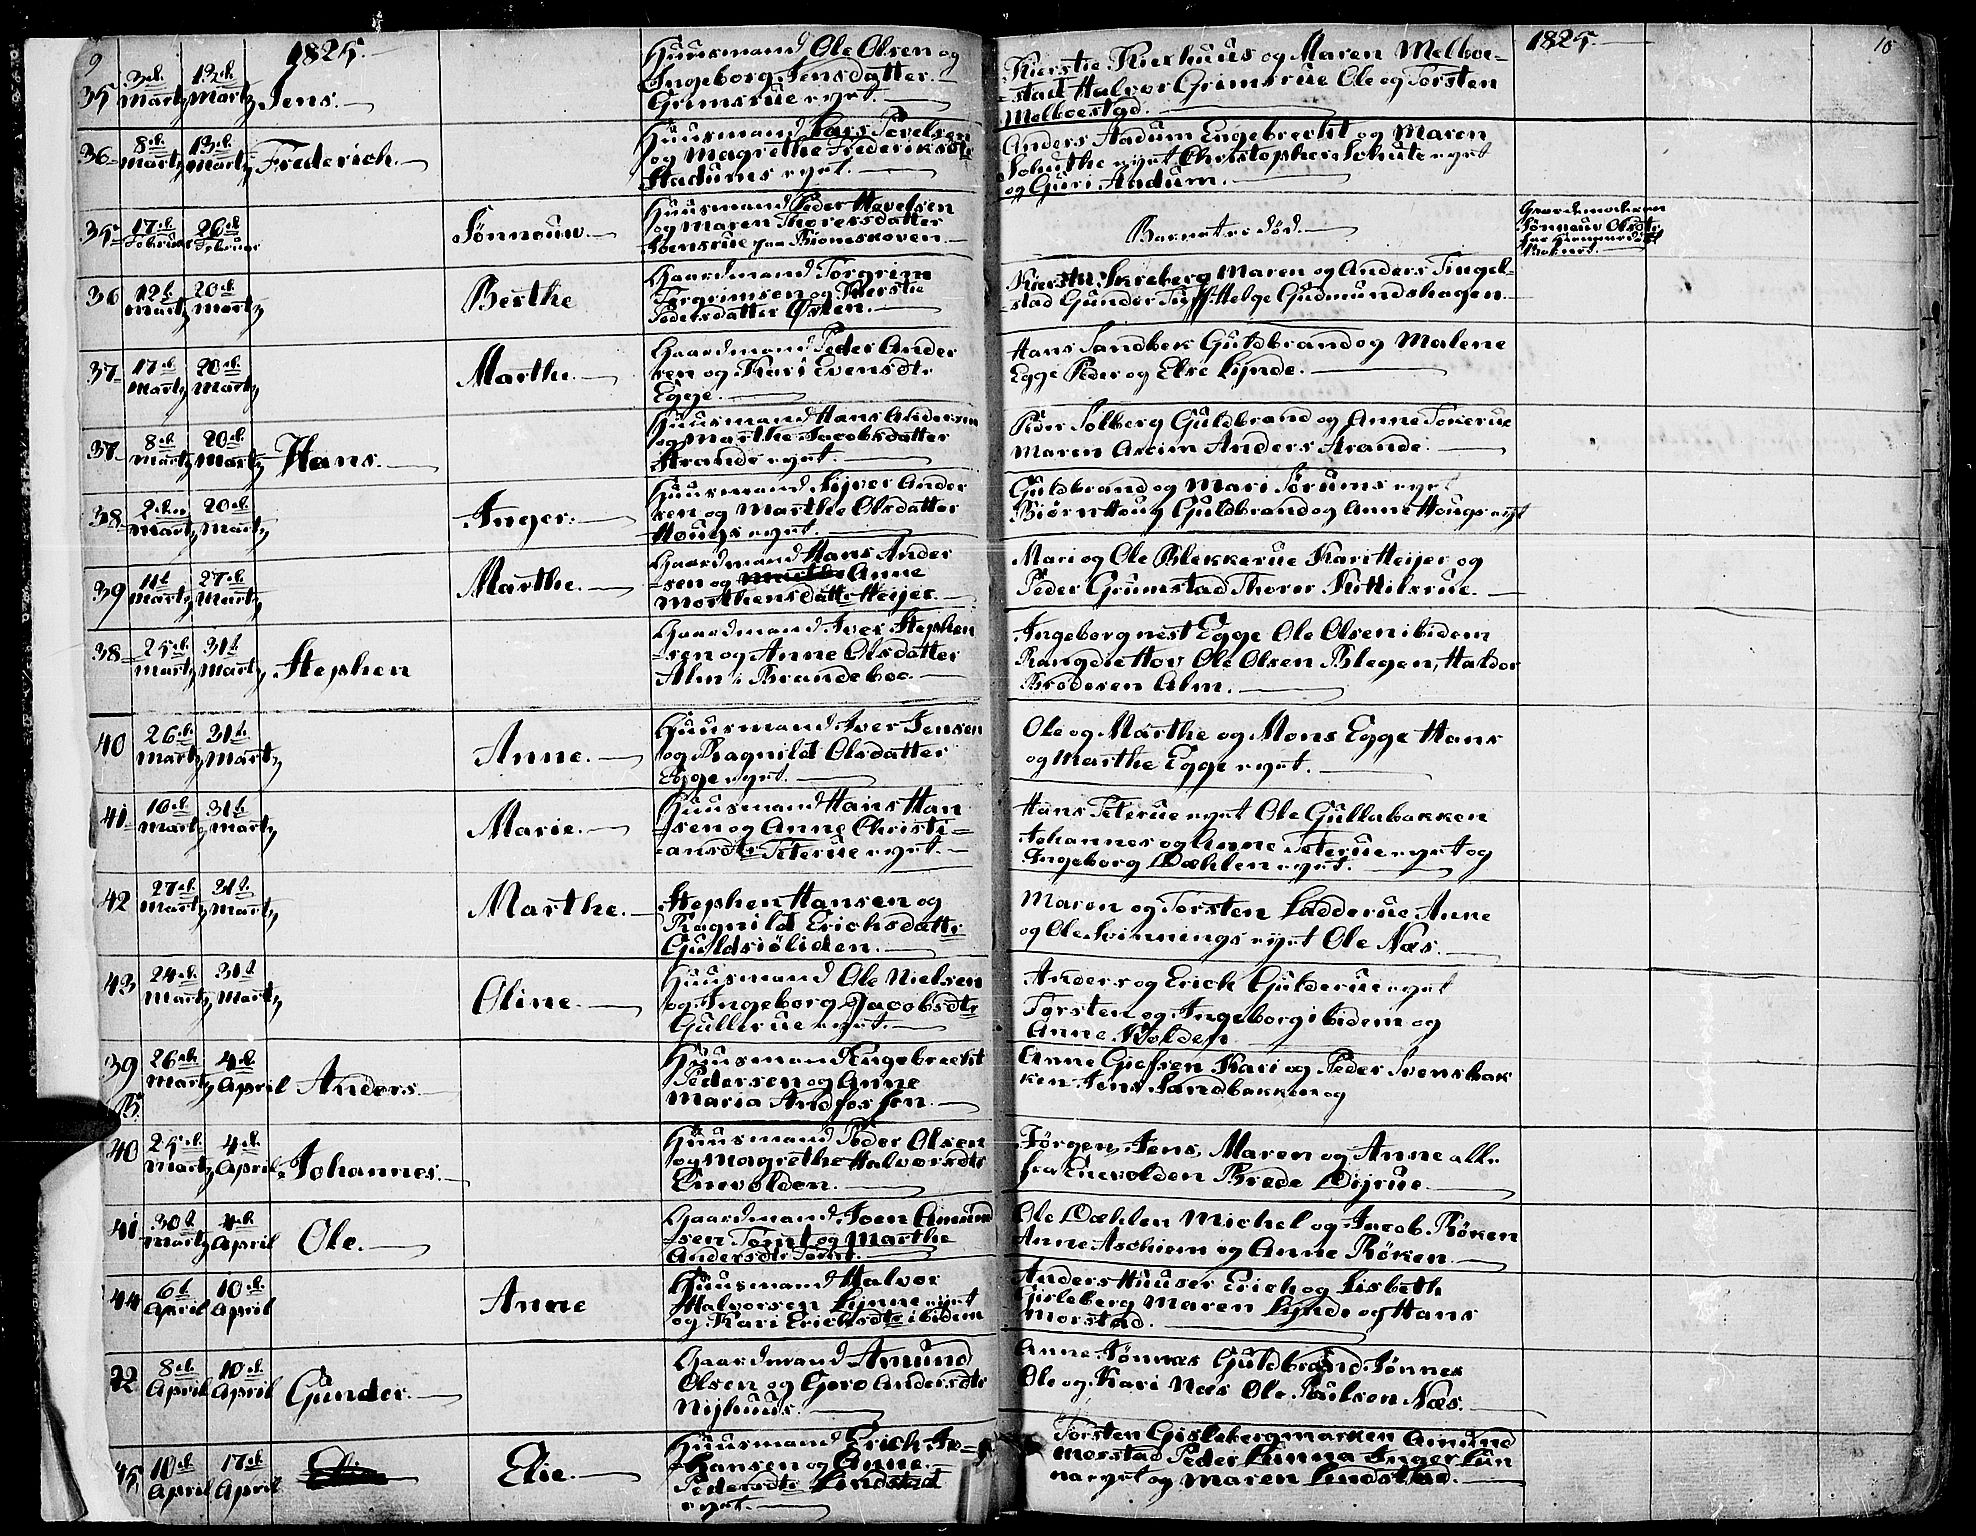 9
1825.
1825.
10
35 3d. Martz 13d. Martz Jens.
Huusmand Ole Olsen og
Ingeborg Jensdatter
Grimsrue eyet.
Kierstie Kiexhuus og Maren Melboe-
stad Halvor Grimsrue Ole og Torsten
Melboestad.
36 8d. Martz 13d. Martz Frederich.
Huusmand Lars Povelsen
og Magrethe Frederiksdtr
Hadums eyet.
Anders Hadum Engebrecht og Maren
Schuthe eyet Christopher Schute eyet
og Guri Hadum.
35 17d. Februar 20d. Februar Sønnouw.
Huusmand Peder Hovelsen
og Maren Thoresdatter
Joensrue paa Biomskoven
Barnet er død.
Gaardmandskonen
Sønnouw Olsdtr
har hiemmedøbt
Barnet.
36 12t. Martz 20d. Martz Berthe
Gaardmand Torgrim
Torgrimsen og Kierstie
Pedersdatter Østen.
Kierstie Skreberg Maren og Anders Tingel-
stad Gunder Tuff Helge Gudmundshagen
37 17d. Martz 20d. Martz Marthe.
Gaardmand Peder Ander
sen og Kari Evensdtr
Egge.
Hans Sandbek Guldbrand og Malene
Egge Peder og Else Lynde.
37 8d. Martz 20d. Martz Hans.
Huusmand Hans Andersen
og Marthe Jacobsdatter
Strande eyet.
Peder Solberg Guldbrand og Anne Tokerue
Maren Askim Anders Strande.
38 2den Martz 20d. Martz Inger.
Huusmand Sijver Ander
sen og Marthe Olsdatter
Hougs eyet.
Guldbrand og Mari Sørums eyet
Biørn Houg Guldbrand og Anne Hougs eyet
39 11t Martz 27d. Martz Marthe.
Gaardmand Hans Ander
sen og Anne
Morthensdatter Heijer
Mari og Ole Blekkerue Kari Heijer og
Peder Grumstad Thorer Kittilsrue.
38 25d. Martz 31t Martz Stephen
Gaardmand Iver Stephen
sen og Anne Olsdatter
Alm i Brandeboe.
Ingeborg nest Egge Ole Olsen ibidem
Rangdie Hov Ole Olsen Blegen, Haldor
Brodersen Alm.
40 26d. Martz 31t. Martz Anne.
Huusmand Iver Jensen
og Ragnild Olsdatter
Egge eyet.
Ole og Marthe og Mons Egge Hans
og Marthe Egge eyet.
41 10d. Martz 31t. Martz Marie.
Huusmand Hans Han
sen og Anne Christi=
ansdtr Teterue eyet.
Hans Teterue eyet Ole Gullabakken
Johannes og Anne Teterue eyet og
Ingeborg Dæhlen eyet.
42 27d. Martz 31t. Martz Marthe.
Stephen Hansen og
Ragnild Erichsdattr
Guldsiøliden.
Maren og Torsten Ladderue Anne
og Ole Svinnings eyet Ole Næs.
43 24d. Martz 31t Martz Oline.
Huusmand Ole Nielsen
og Ingeborg Jacobsdtr
Gullerue eyet.
Anders og Erich Gulderue eyet
Torsten og Ingeborg ibidem og
Anne Holden
39 26d. Martz 4d. April Anders.
Huusmand Engebrecht
Pedersen og Anne
Maria Andfossen.
Anne Giefsen Kari og Peder Svensbak
ken Jens Sandbakken og
40 25d. Martz 4d. April Johannes.
Huusmand Peder Olsen
og Magrethe Halvorsdtr
Enevolden.
Jørgen, Jens, Maren og Anne alle
fra Enevolden Brede Dijrue
41 30t Martz 4d. April Ole.
Gaardmand Joen Amund
sen Tømt og Marthe
Andersdtr Tomt.
Ole Dæhlen Michel og Jacob Røken
Anne Aschiem og Anne Røken.
44 6t. April 10d. April Anne
Huusmand Halvor
Halvorsen Lynne eyet
og Kari Erichsdtr ibidem
Anders Huuser Erich og Lisbeth
Gisleberg Maren Lynde og Hans
Morstad.
42 8d. April 10d. April Gunder.
Gaardmand Amund
Olsen og Goro Andersdtr
Nijhuus.
Anne Jønnes Guldbrand Jønnes
Ole og Kari Næs Ole Poulsen Næs.
45 10d. April 17d. April Elie.
Huusmand Erich Jo=
hansen og Anne
Pedersdtr Lindstad
eyet.
Torsten Gislebergmarken Amund
Morstad Peder Lunna Inger Lun
na eyet og Maren Lindstad.